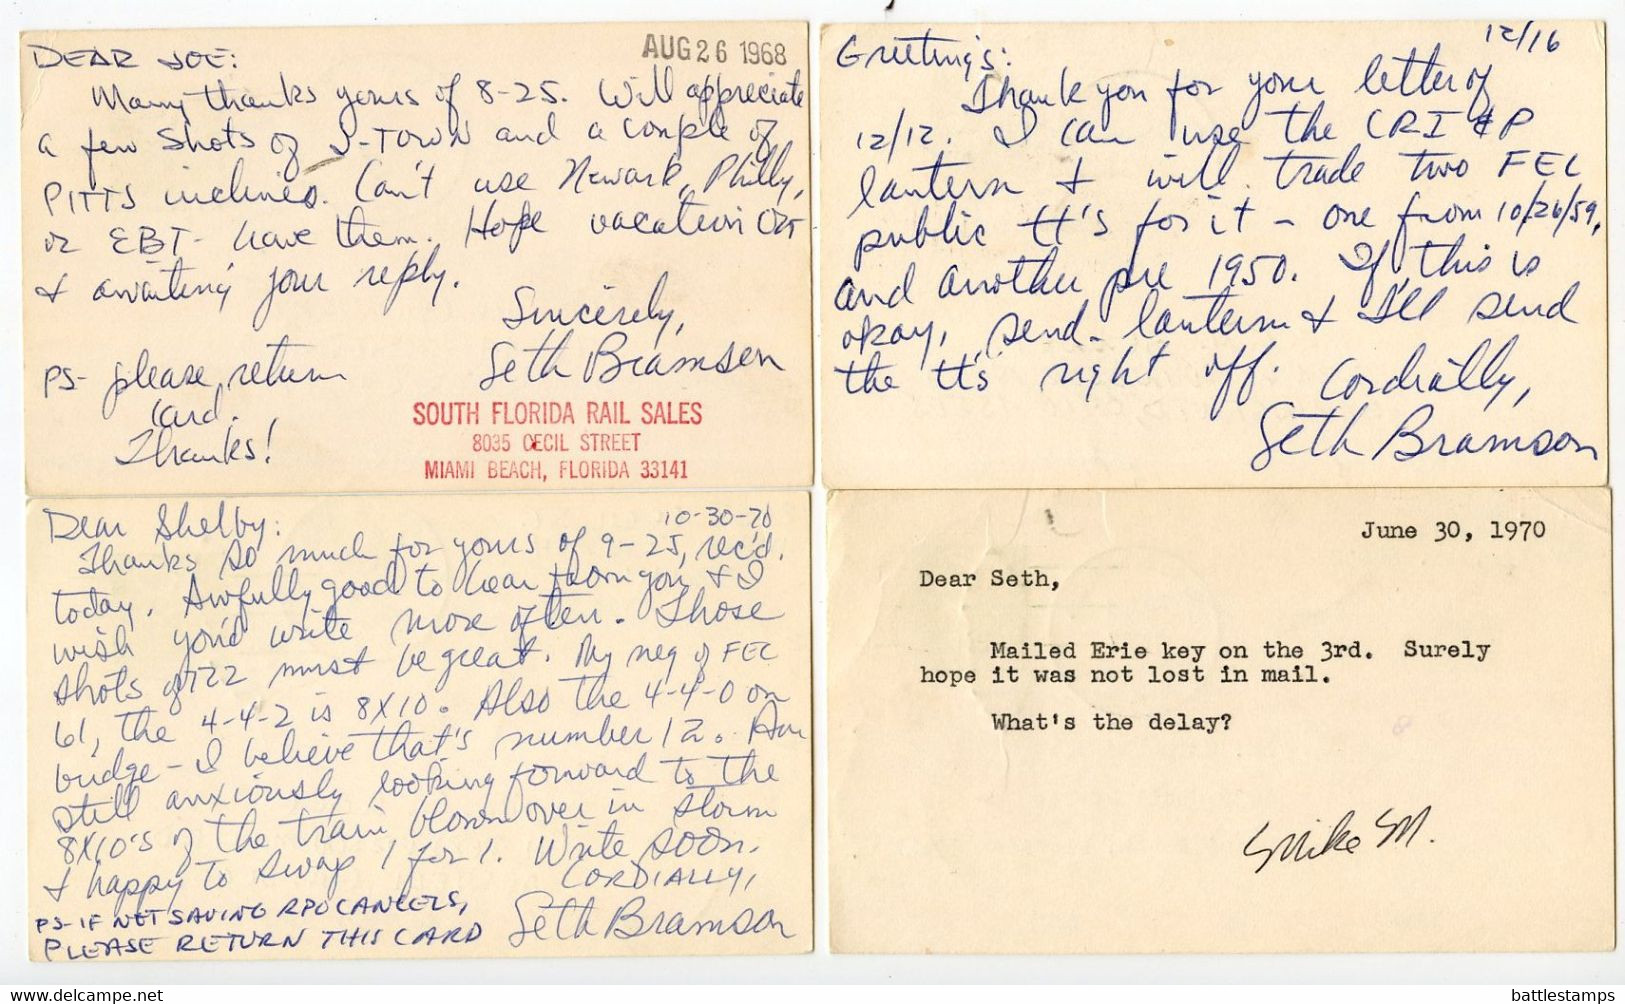 AUG 26 1968
DEAR JOE:
Many thanks yours of 8-25. Will appreciate
a few shots of J-TOWN and a couple of
PITTS inclines. Can't use Newark, Philly,
or EBT - have them. Hope vacation OK
& awaiting your reply.
Sincerely,
Seth Bramson
PS- please return
card.
Thanks!
SOUTH FLORIDA RAIL SALES
8035 CECIL STREET
MIAMI BEACH, FLORIDA 33141
12/16
Greetings:
Thank you for your letter of
12/12. I can use the CRI&P
lantern & will trade two FEC
public tt's for it - one from 10/26/59,
and another pre 1950. If this is
okay, send lantern & I'll send
the tt's right off.
Cordially,
Seth Bramson
10-30-70
Dear Shelby:
Thanks so much for yours of 9-25, rec'd.
today. Awfully good to hear from you & I
wish you'd write more often. Those
shots of 722 must be great. My neg of FEC
61, the 4-4-2 is 8X10. Also the 4-4-0 on
bridge - I believe that's number 12. Am
still anxiously looking forward to the
8X10's of the train blown over in storm
& happy to swap 1 for 1. Write soon.
CORDIALLY,
Seth Bramson
PS- IF NOT SAVING RPO CANCELS,
PLEASE RETURN THIS CARD
June 30, 1970
Dear Seth,
Mailed Erie key on the 3rd. Surely
hope it was not lost in mail.
What's the delay?
Mike M.
delcampe.net
battlestamps